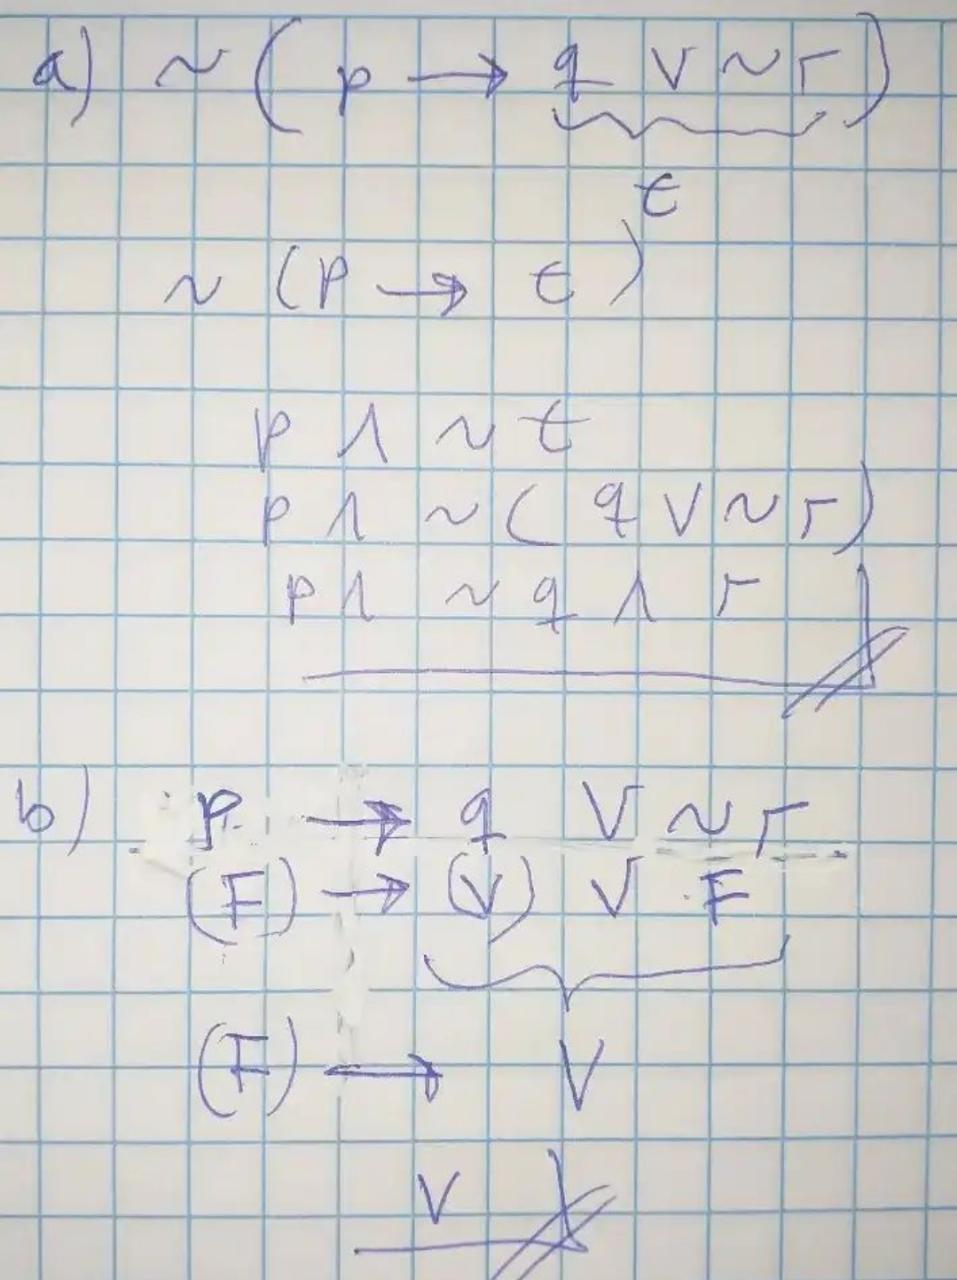 a) ~ ( p → q ∨ ~ r )
t
~ ( p → t )
p ∧ ~ t
p ∧ ~ ( q ∨ ~ r )
p ∧ ~ q ∧ r
b) p → q ∨ ~ r
(F) → (V) ∨ F
(F) → V
V